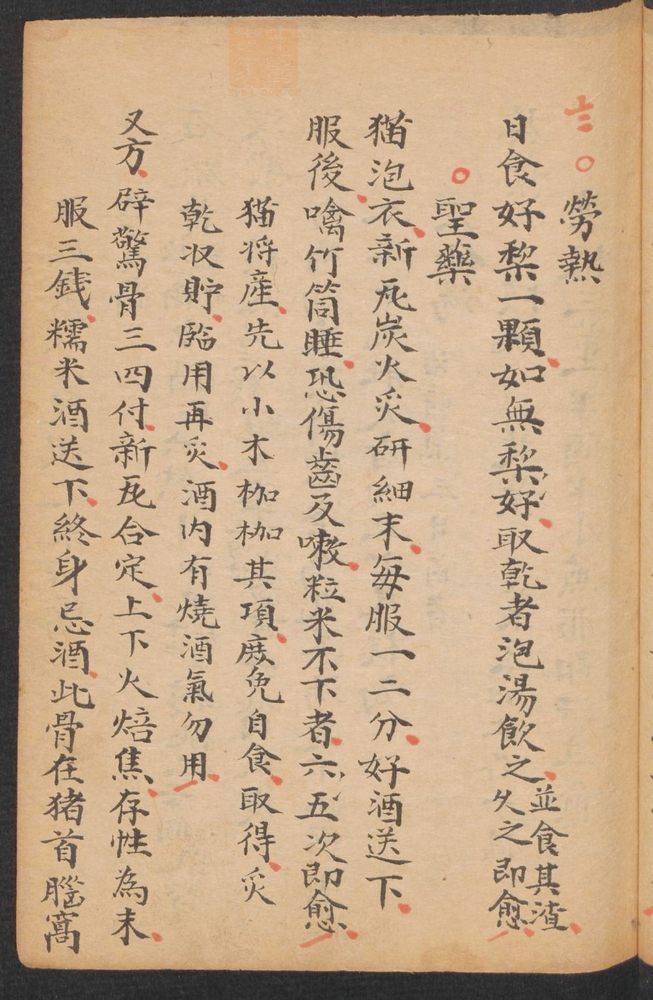 勞熱
日食好梨一顆如無梨好取乾者泡湯飲之並食其渣
久之即愈
聖藥
猫泡衣新瓦炭火炙研細末每服一二分好酒送下
服後噙竹筒睡恐傷齒及嗽粒米不下者六五次即愈
猫將產先以小木枷枷其項庻免自食取得炙
乾収貯臨用再炙酒内有燒酒氣勿用
又方辟驚骨三四付新瓦合定上下火焙焦存性為末
服三錢糯米酒送下終身忌酒此骨在猪首腦窩